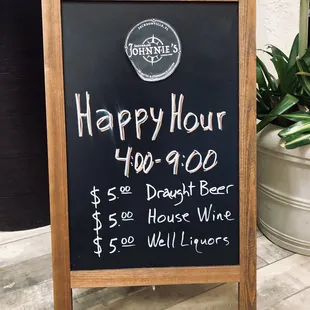 JOHNNIE'S
Happy Hour
4:00-9:00
$5.00 Draught Beer
$5.00 House Wine
$5.00 Well Liquors